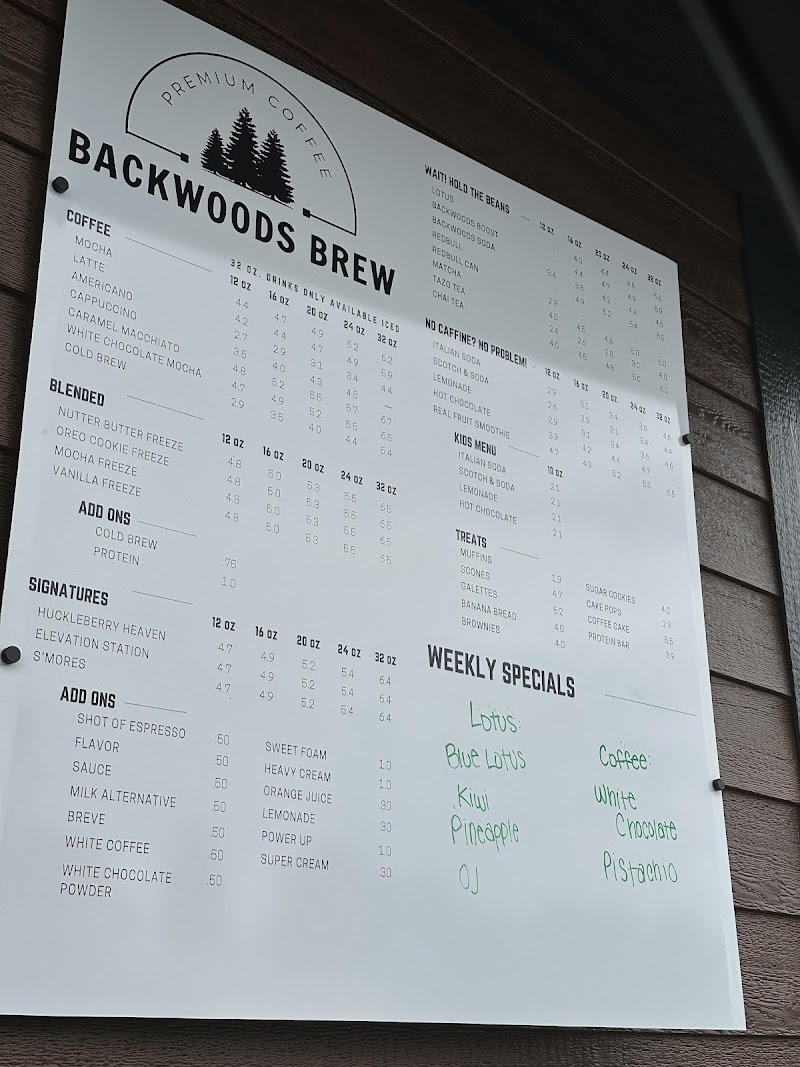 PREMIUM COFFEE
BACKWOODS BREW
32 OZ. DRINKS ONLY AVAILABLE ICED
COFFEE 12 OZ 16 OZ 20 OZ 24 OZ 32 OZ
MOCHA 4.4 4.7 4.9 5.2 6.2
LATTE 4.2 4.4 4.7 4.9 5.9
AMERICANO 2.7 2.9 3.1 3.4 4.4
CAPPUCCINO 3.5 4.0 4.3 4.5 —
CARAMEL MACCHIATO 4.8 5.2 5.5 5.7 6.7
WHITE CHOCOLATE MOCHA 4.7 4.9 5.2 5.5 6.5
COLD BREW 2.9 3.5 4.0 4.4 5.4
BLENDED 12 OZ 16 OZ 20 OZ 24 OZ 32 OZ
NUTTER BUTTER FREEZE 4.8 5.0 5.3 5.5 6.5
OREO COOKIE FREEZE 4.8 5.0 5.3 5.5 6.5
MOCHA FREEZE 4.8 5.0 5.3 5.5 6.5
VANILLA FREEZE 4.8 5.0 5.3 5.5 6.5
ADD ONS
COLD BREW .75
PROTEIN 1.0
SIGNATURES 12 OZ 16 OZ 20 OZ 24 OZ 32 OZ
HUCKLEBERRY HEAVEN 4.7 4.9 5.2 5.4 6.4
ELEVATION STATION 4.7 4.9 5.2 5.4 6.4
S'MORES 4.7 4.9 5.2 5.4 6.4
ADD ONS
SHOT OF ESPRESSO .50
FLAVOR .50
SAUCE .50
MILK ALTERNATIVE .50
BREVE .50
WHITE COFFEE .50
WHITE CHOCOLATE
POWDER .50
SWEET FOAM 1.0
HEAVY CREAM 1.0
ORANGE JUICE .30
LEMONADE .30
POWER UP 1.0
SUPER CREAM .30
WAIT! HOLD THE BEANS 12 OZ 16 OZ 20 OZ 24 OZ 32 OZ
LOTUS
BACKWOODS BOOST
BACKWOODS SODA
REDBULL
REDBULL CAN
MATCHA
TAZO TEA
CHAI TEA
NO CAFFINE? NO PROBLEM! 12 OZ 16 OZ 20 OZ 24 OZ 32 OZ
ITALIAN SODA 2.9 3.1 3.4 3.6 4.6
SCOTCH & SODA 2.6 2.9 3.1
LEMONADE 2.9 3.1 3.4
HOT CHOCOLATE 3.9
REAL FRUIT SMOOTHIE 4.7 4.9 5.2 5.5 6.5
KIDS MENU 10 OZ
ITALIAN SODA 2.1
SCOTCH & SODA 2.1
LEMONADE 2.1
HOT CHOCOLATE 2.1
TREATS
MUFFINS 1.9
SCONES 4.7
GALETTES 5.2
BANANA BREAD 4.0
BROWNIES 4.0
SUGAR COOKIES 4.0
CAKE POPS 2.9
COFFEE CAKE 5.5
PROTEIN BAR 3.9
WEEKLY SPECIALS
Lotus:
Blue Lotus
Kiwi
Pineapple
OJ
Coffee:
White
Chocolate
Pistachio